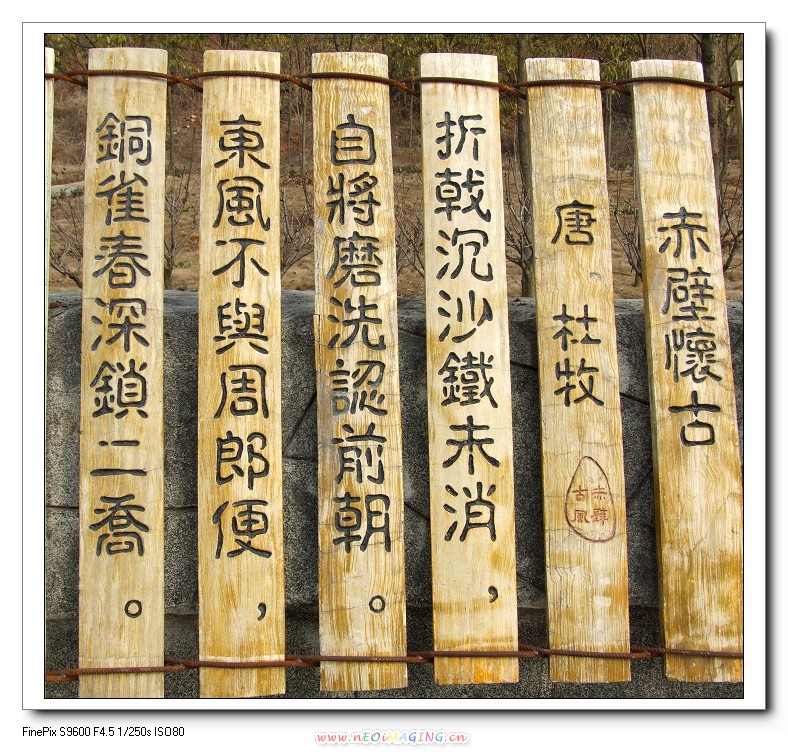 赤壁懷古
唐 杜牧
赤壁
古風
折戟沉沙鐵未消，
自將磨洗認前朝。
東風不與周郎便，
銅雀春深鎖二喬。
FinePix S9600 F4.5 1/250s ISO80
www.nEOiMAGiNG.cn